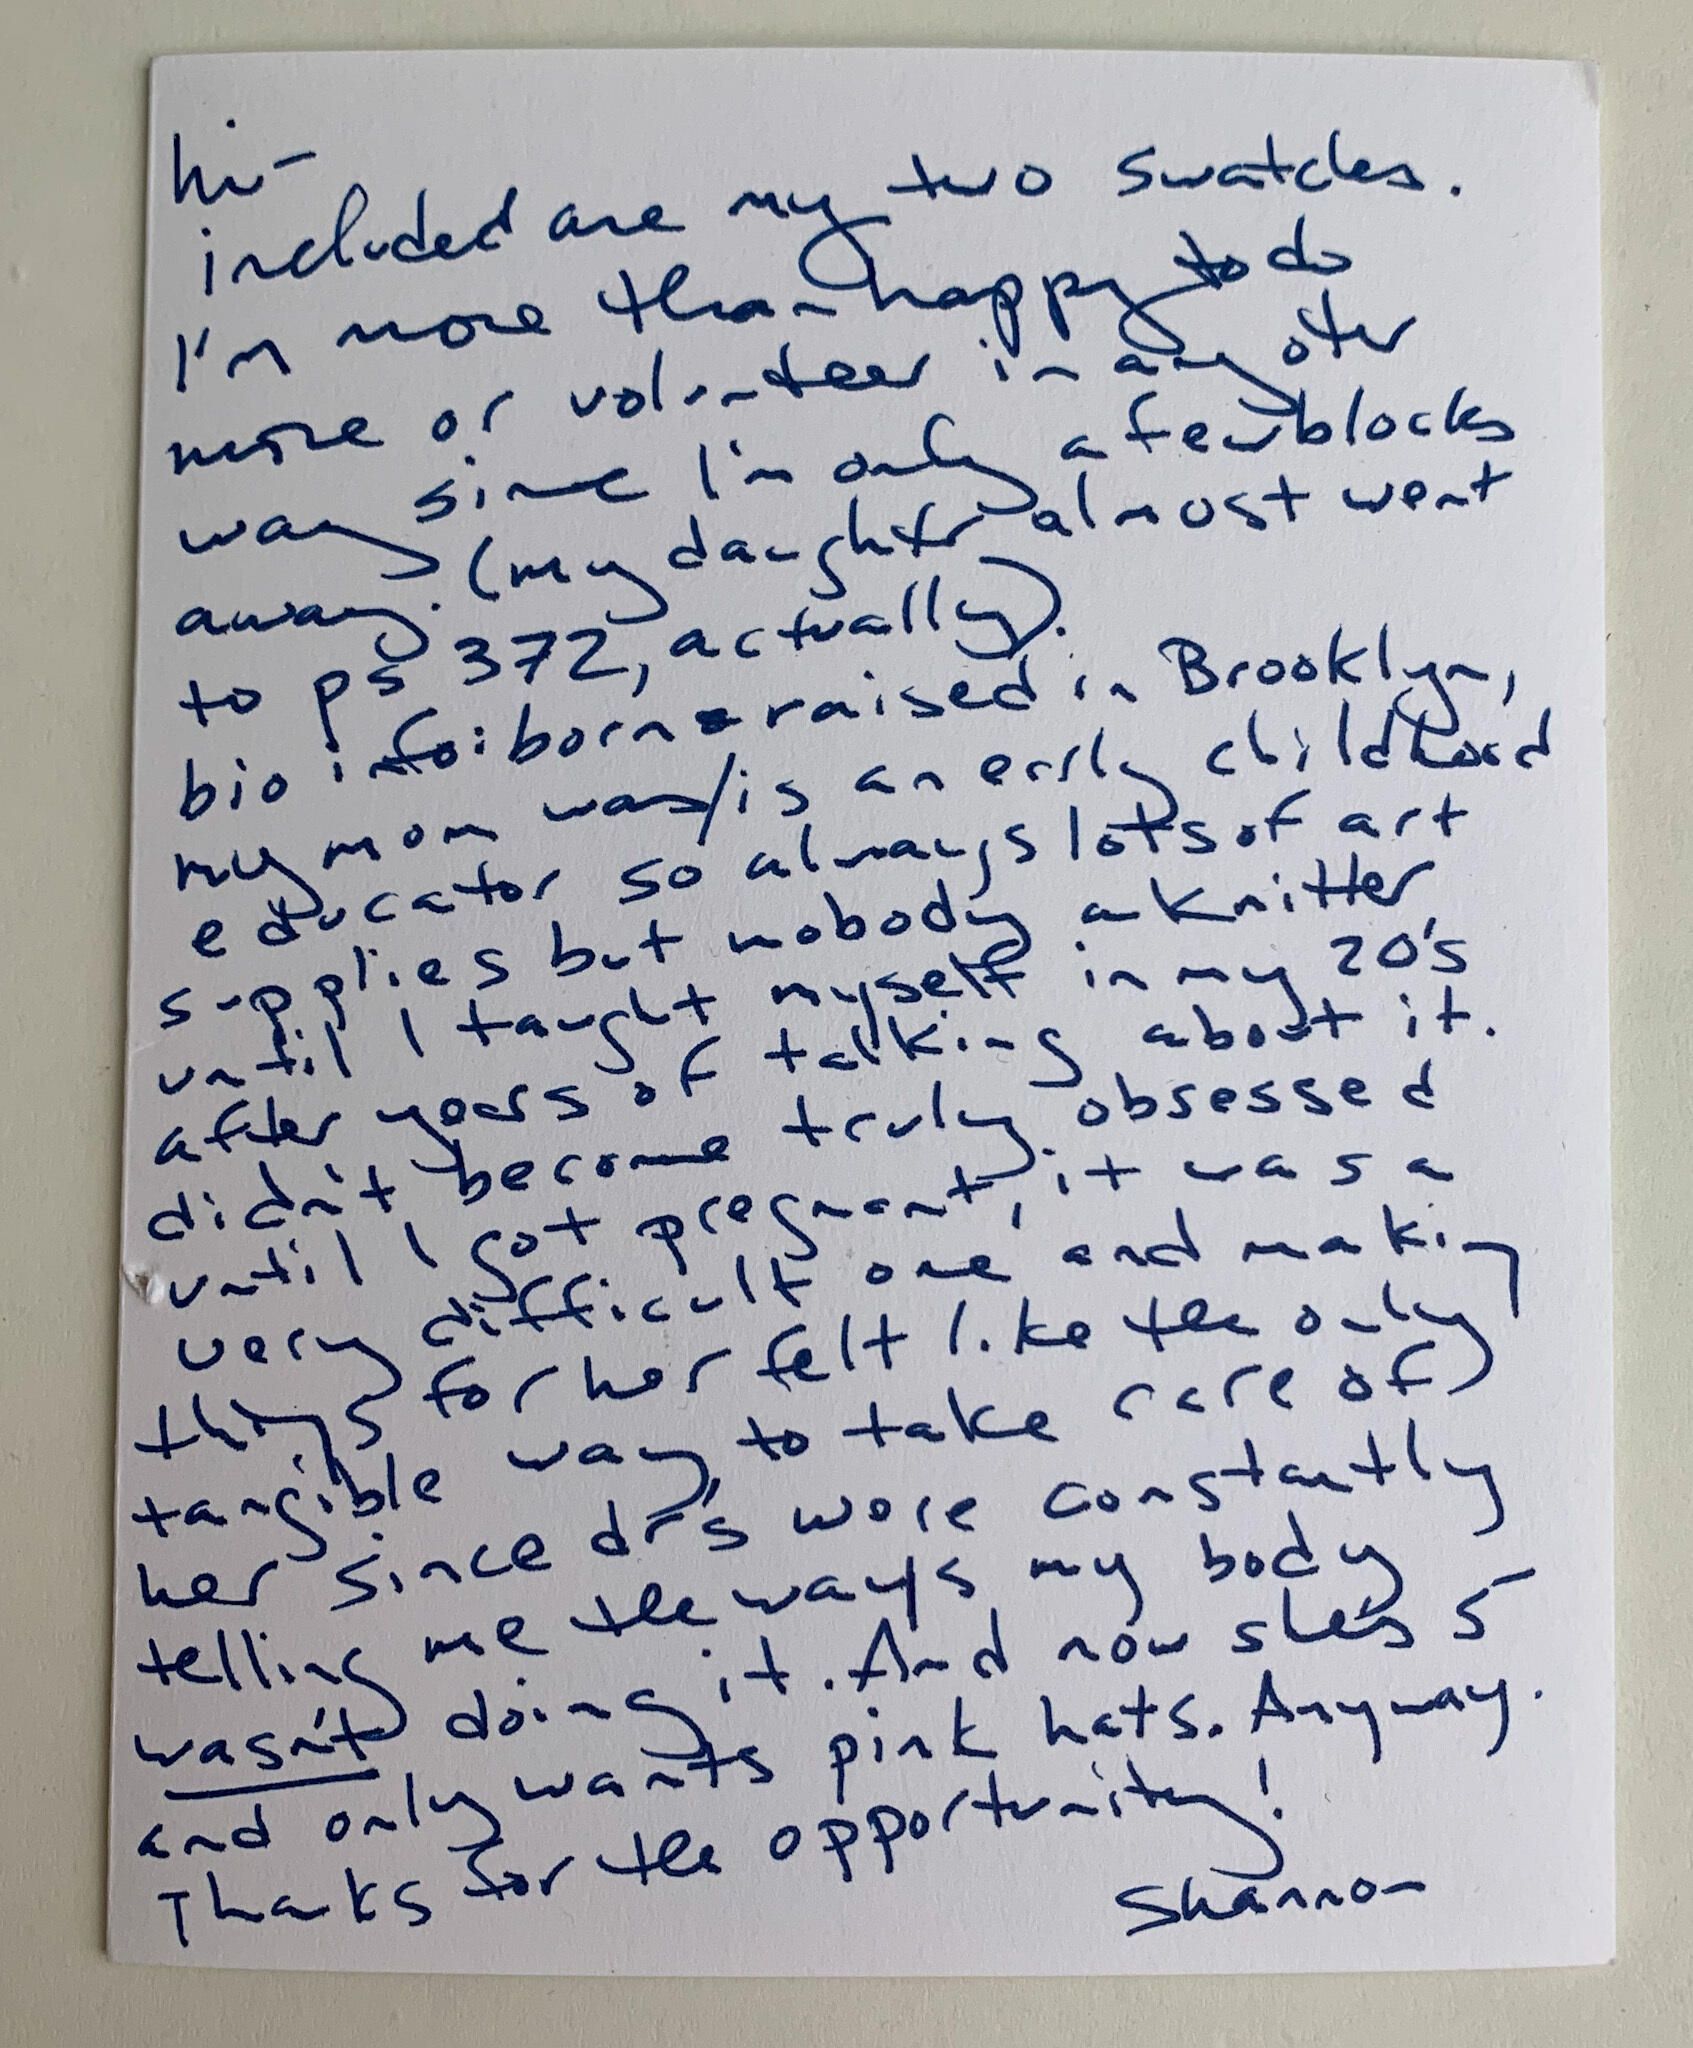 hi-
included are my two swatches.
I'm more than happy to do
more or volunteer in any other
way since I'm only a few blocks
away. (my daughter almost went
to ps 372, actually).
bio info: born & raised in Brooklyn,
my mom was/is an early childhood
educator so always lots of art
supplies but nobody a knitter
until I taught myself in my 20's
after years of talking about it.
didn't become truly obsessed
until I got pregnant, it was a
very difficult one and making
things for her felt like the only
tangible way to take care of
her since dr's were constantly
telling me the ways my body
wasn't doing it. And now she's 5
and only wants pink hats. Anyway.
Thanks for the opportunity!
Shannon